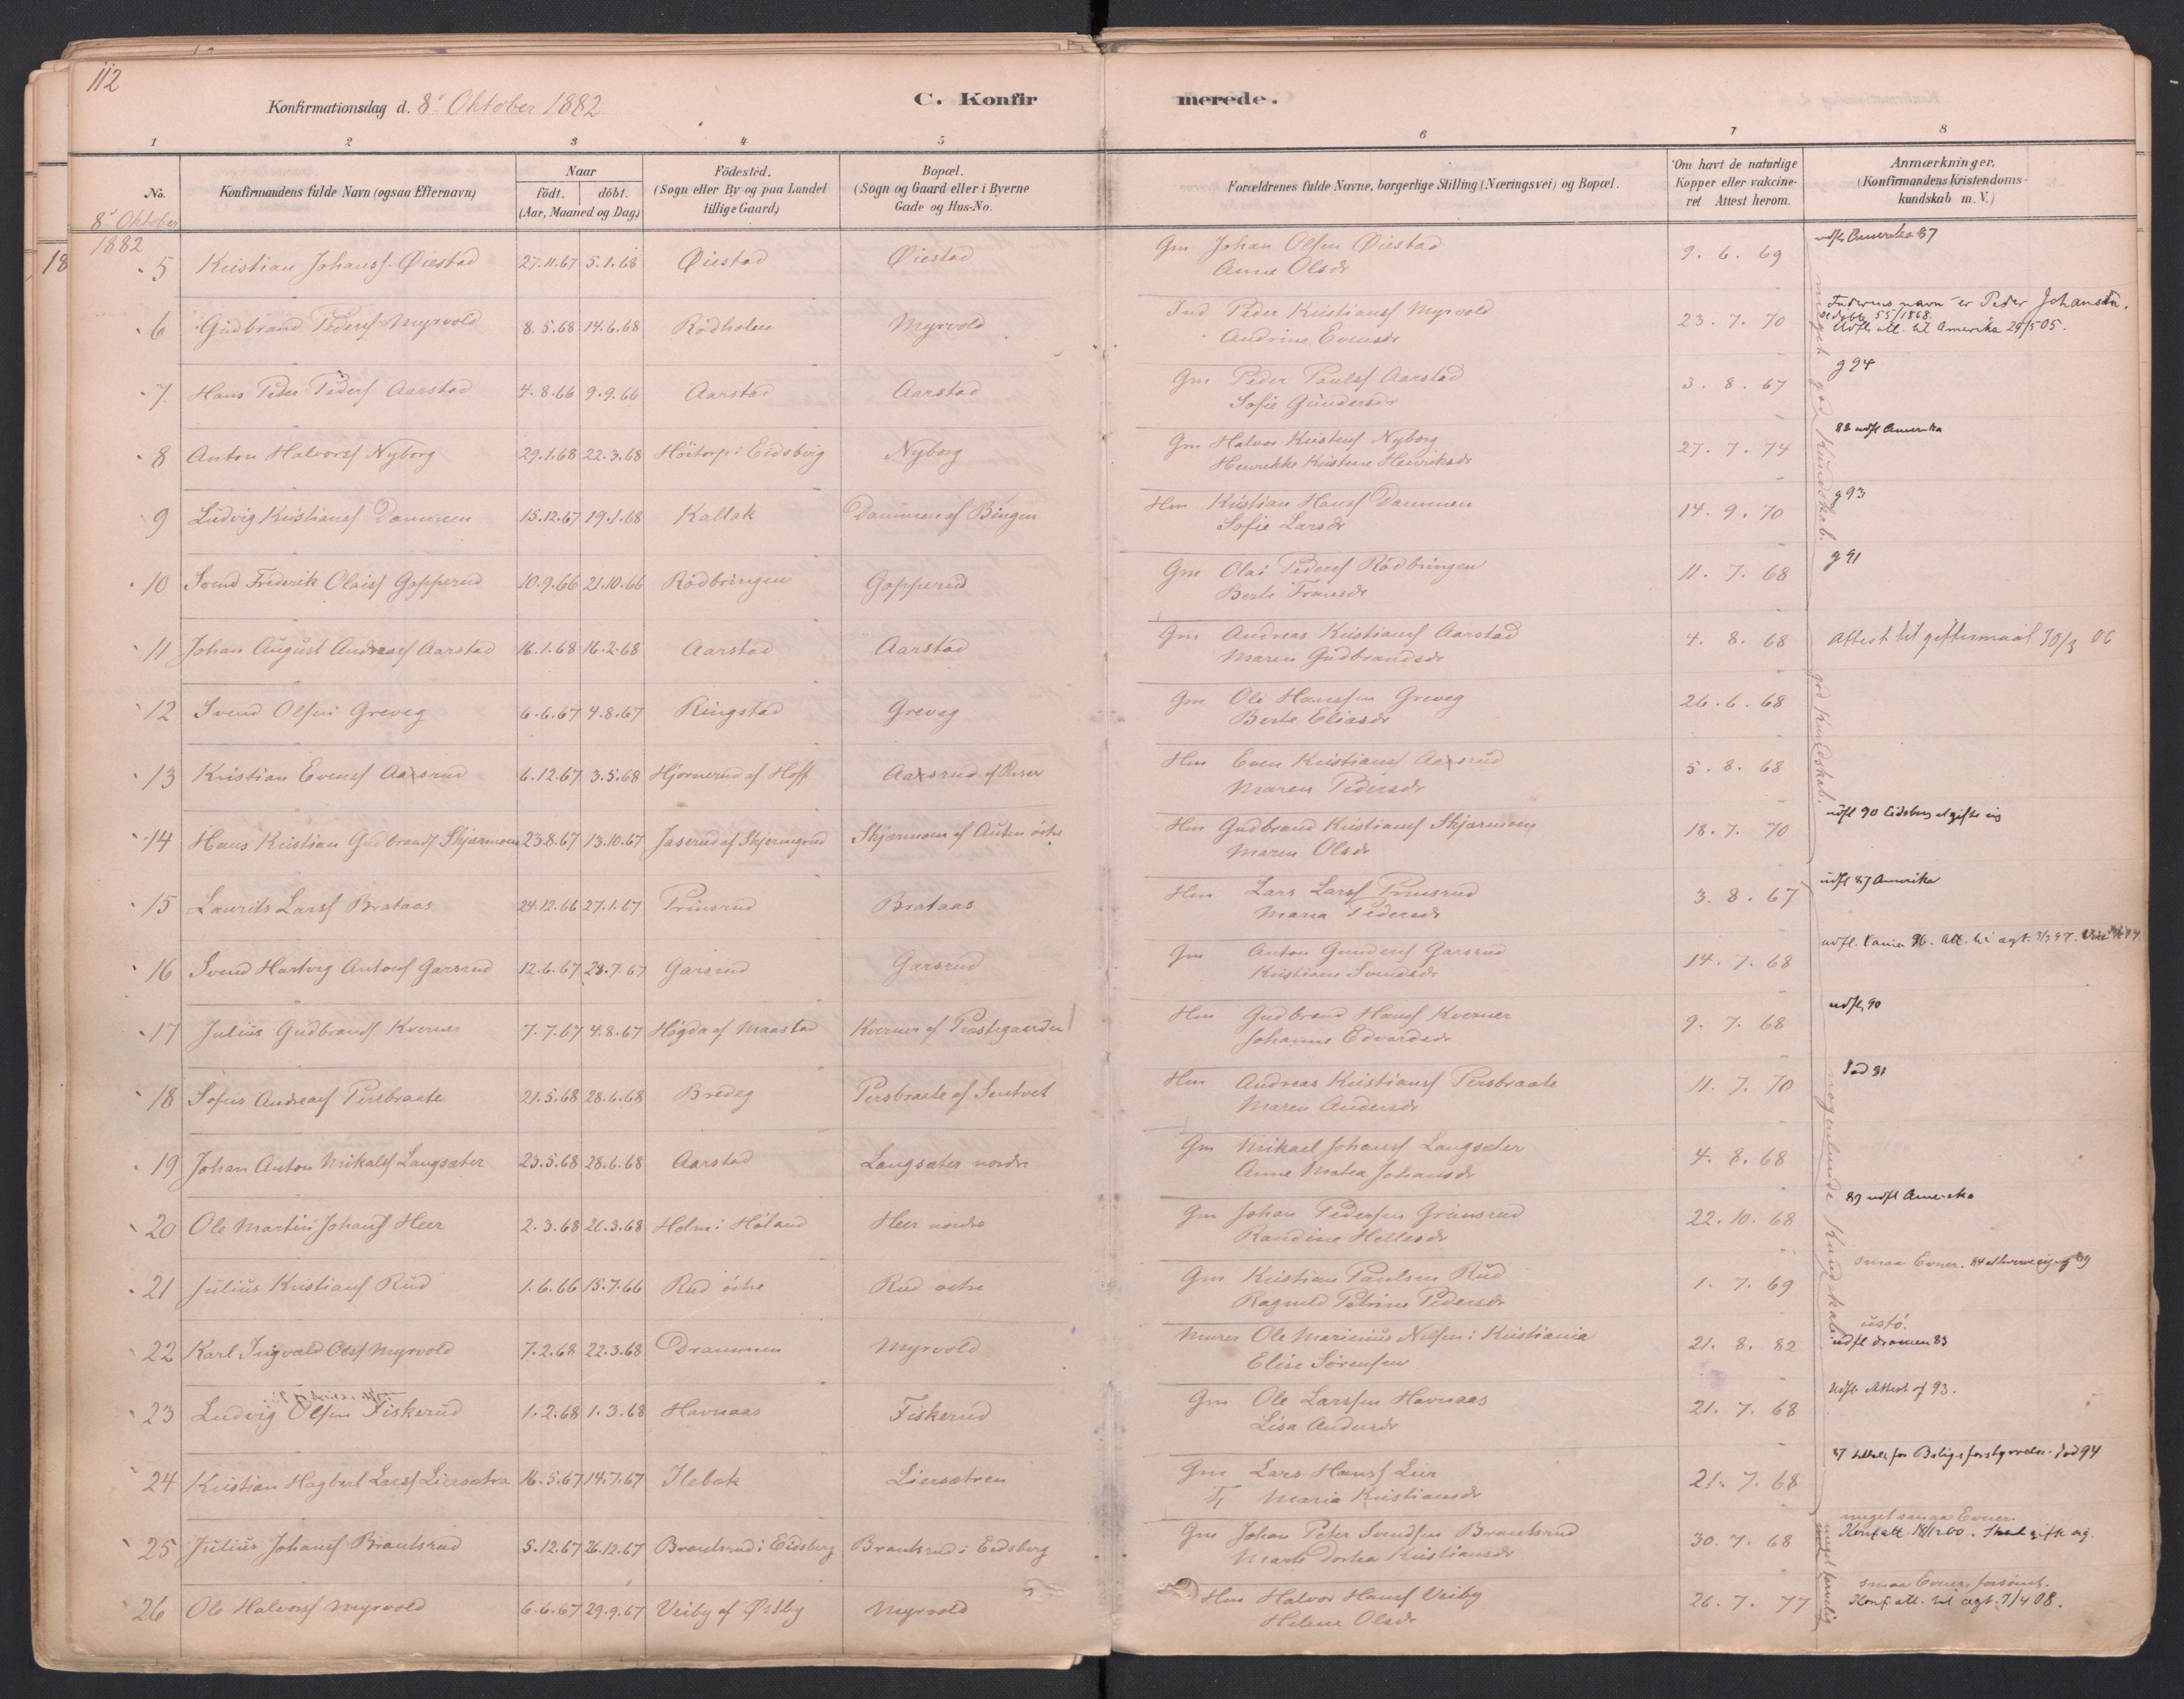 112
Konfirmationsdag d. 8de Oktober 1882
C. Konfir merede.
1 2 3 4 5 6 7 8
No.
Konfirmandens fulde Navn (ogsaa Efternavn)
Naar
födt. döbt.
(Aar, Maaned og Dag)
Födested.
(Sogn eller By og paa Landet
tillige Gaard)
Bopæl.
(Sogn og Gaard eller i Byerne
Gade og Hus-No.
Forældrenes fulde Navne, borgerlige Stilling (Næringsvei) og Bopæl.
Om havt de naturlige
Kopper eller vakcine-
ret Attest herom.
Anmærkninger.
(Konfirmandens Kristendoms-
kundskab m. V.)
8de Oktober
1882
18
5 Kristian Johansf. Øiestad 27.11.67 5.1.68 Øiestad Øiestad Gm Johan Olsen Øiestad 9. 6. 69 udfl. Amerika 87
Anne Olsdr
6 Gudbrand Pedersf Myrvold 8.5.68 14.6.68 Rödholen Myrvold Ind Peder Kristiansf Myrvold 23. 7. 70 Faderens navn er Peder Johansen.
Andrine Evensdr
se döbte 55/1868.
Udfl. att. til Amerika 29/5 05.
7 Hans Peder Pedersf Aarstad 4.8.66 9.9.66 Aarstad Aarstad Gm Peder Paulsf Aarstad 3. 8. 67 g 94
Sofie Gundersdr
8 Anton Halvorsf Nyborg 29.1.68 22.3.68 Höitorp i Eidsberg Nyborg Gm Halvor Kristensf Nyborg 27. 7. 74 88 udfl Amerika
Henrikke Kristine Henriksdr
9 Ludvig Kristiansf Dammen 15.12.67 19.1.68 Kallak Dammen af Bingen Hm Kristian Hansf Dammen 14. 9. 70 g 93
Sofie Larsdr
10 Svend Frederik Olaisf Gopperud 10.9.66 21.10.66 Rödbringen Gopperud Gm Olai Pedersf Rödbringen 11. 7. 68 g 91
Berte Fransdr
11 Johan August Andreasf Aarstad 16.1.68 16.2.68 Aarstad Aarstad Gm Andreas Kristiansf Aarstad 4. 8. 68 Attest til giftermaal 30/3 06
Maren Gudbrandsdr
12 Svend Olsen Greveg 6.6.67 4.8.67 Ringstad Greveg Gm Ole Hanssen Greveg 26. 6. 68
Berte Eliasdr
13 Kristian Evensf Aaxsrud 6.12.67 3.5.68 Hjornerud af Hoff Aaxsrud af Riser Hm Even Kristiansf Aaxsrud 5. 8. 68
Maren Pedersdr
14 Hans Kristian Gudbrandsf Skjærmoen 23.8.67 13.10.67 Jaserud af Skjeringrud Skjærmoen af Auten östre Hm Gudbrand Kristiansf Skjærmoen 18. 7. 70 udfl 90 Eidsberg
Maren Olsdr
15 Laurits Larsf Brataas 24.12.66 27.1.67 Prinsrud Brataas Hm Lars Larsf Prinsrud 3. 8. 67 udfl 87 Amerika
Maria Pedersdr
16 Svend Hartvig Antonsf Garsrud 12.6.67 28.7.67 Garsrud Garsrud Gm Anton Gundersf Garsrud 14. 7. 68
Kristiane Svendsdr
17 Julius Gudbrandsf Kverner 7.7.67 4.8.67 Högda af Maastad Kverner af Præstegaarden Hm Gudbrand Hansf Kverner 9. 7. 68 udfl. 90
Johanne Edvardsdr
18 Sofus Andreasf Persbraate 21.5.68 28.6.68 Bredeg Persbraate af Sentvet Hm Andreas Kristiansf Persbraate 11. 7. 70
Maren Andersdr
19 Johan Anton Mikalsf Langsæter 23.5.68 28.6.68 Aarstad Langsæter nordre Gm Mikael Johansf Langsæter 4. 8. 68
Anne Matea Johansdr
20 Ole Martin Johansf Heer 2.3.68 26.3.68 Holm i Höland Heer nordre Gm Johan Pedersen Grimsrud 22. 10. 68 87 udfl Amerika
Randine Hellesdr
21 Julius Kristiansf Rud 1.6.66 15.7.66 Rud östre Rud östre Gm Kristian Paulsen Rud 1. 7. 69 smaa Evner.
Ragnild Petrine Pedersdr
22 Karl Ingvald Olsf Myrvold 7.2.68 22.3.68 Drammen Myrvold Murer Ole Marinius Nilsen i Kristiania 21. 8. 82 ustö.
Elise Sörensen
udfl Dramen 83
23 Ludvig Olsen Fiskerud 1.2.68 1.3.68 Havnaas Fiskerud Gm Ole Larssen Havnaas 21. 7. 68 Udfl. Attest af 93.
Lisa Andersdr
24 Kristian Hagbart Larsf Liersætra 16.5.67 14.7.67 Ilebæk Liersætren Gm Lars Hansf Lier 21. 7. 68
Maria Kristiansdr
25 Julius Johansf Brantsrud 5.12.67 26.12.67 Brantsrud i Eidsberg Brantsrud i Eidsberg Gm Johan Peter Svendsen Brantsrud 30. 7. 68 meget smaa Evner.
Marte Dortea Kristiansdr
26 Ole Halvorsf Myrvold 6.6.67 29.9.67 Veiby af Østby Myrvold Hm Halvor Hansf Veiby 26. 7. 77 smaa Evner, forsömt.
Helene Olsdr
Konf. att. til ægt. 7/4 08.
meget god Kundskab.
god Kundskab.
nogenlunde Kundskab.